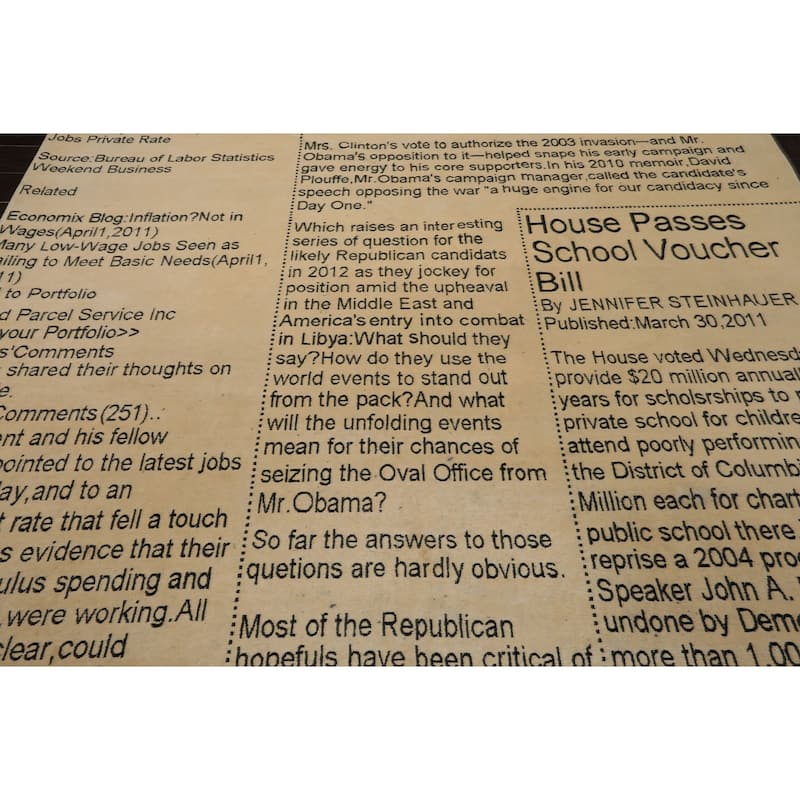 Jobs Private Rate
Source:Bureau of Labor Statistics
Weekend Business
Related
Economix Blog:Inflation?Not in
Wages(April1,2011)
Many Low-Wage Jobs Seen as
ailing to Meet Basic Needs(April1,
11)
to Portfolio
d Parcel Service Inc
your Portfolio>>
s'Comments
shared their thoughts on
e.
Comments(251)..
ent and his fellow
pointed to the latest jobs
ay,and to an
t rate that fell a touch
s evidence that their
ulus spending and
were working.All
clear,could
Mrs. Clinton's vote to authorize the 2003 invasion—and Mr.
Obama's opposition to it—helped snape his early campaign and
gave energy to his core supporters.In his 2010 memoir,David
Plouffe,Mr.Obama's campaign manager,called the candidate's
speech opposing the war "a huge engine for our candidacy since
Day One."
Which raises an interesting
series of question for the
likely Republican candidats
in 2012 as they jockey for
position amid the upheaval
in the Middle East and
America's entry into combat
in Libya:What should they
say?How do they use the
world events to stand out
from the pack?And what
will the unfolding events
mean for their chances of
seizing the Oval Office from
Mr.Obama?
So far the answers to those
quetions are hardly obvious.
Most of the Republican
hopefuls have been critical of
House Passes
School Voucher
Bill
By JENNIFER STEINHAUER
Published:March 30,2011
The House voted Wednesd
provide $20 million annual
years for scholsrships to
private school for childre
attend poorly performin
the District of Columbi
Million each for chart
public school there
reprise a 2004 pro
Speaker John A.
undone by Dem
more than 1,00